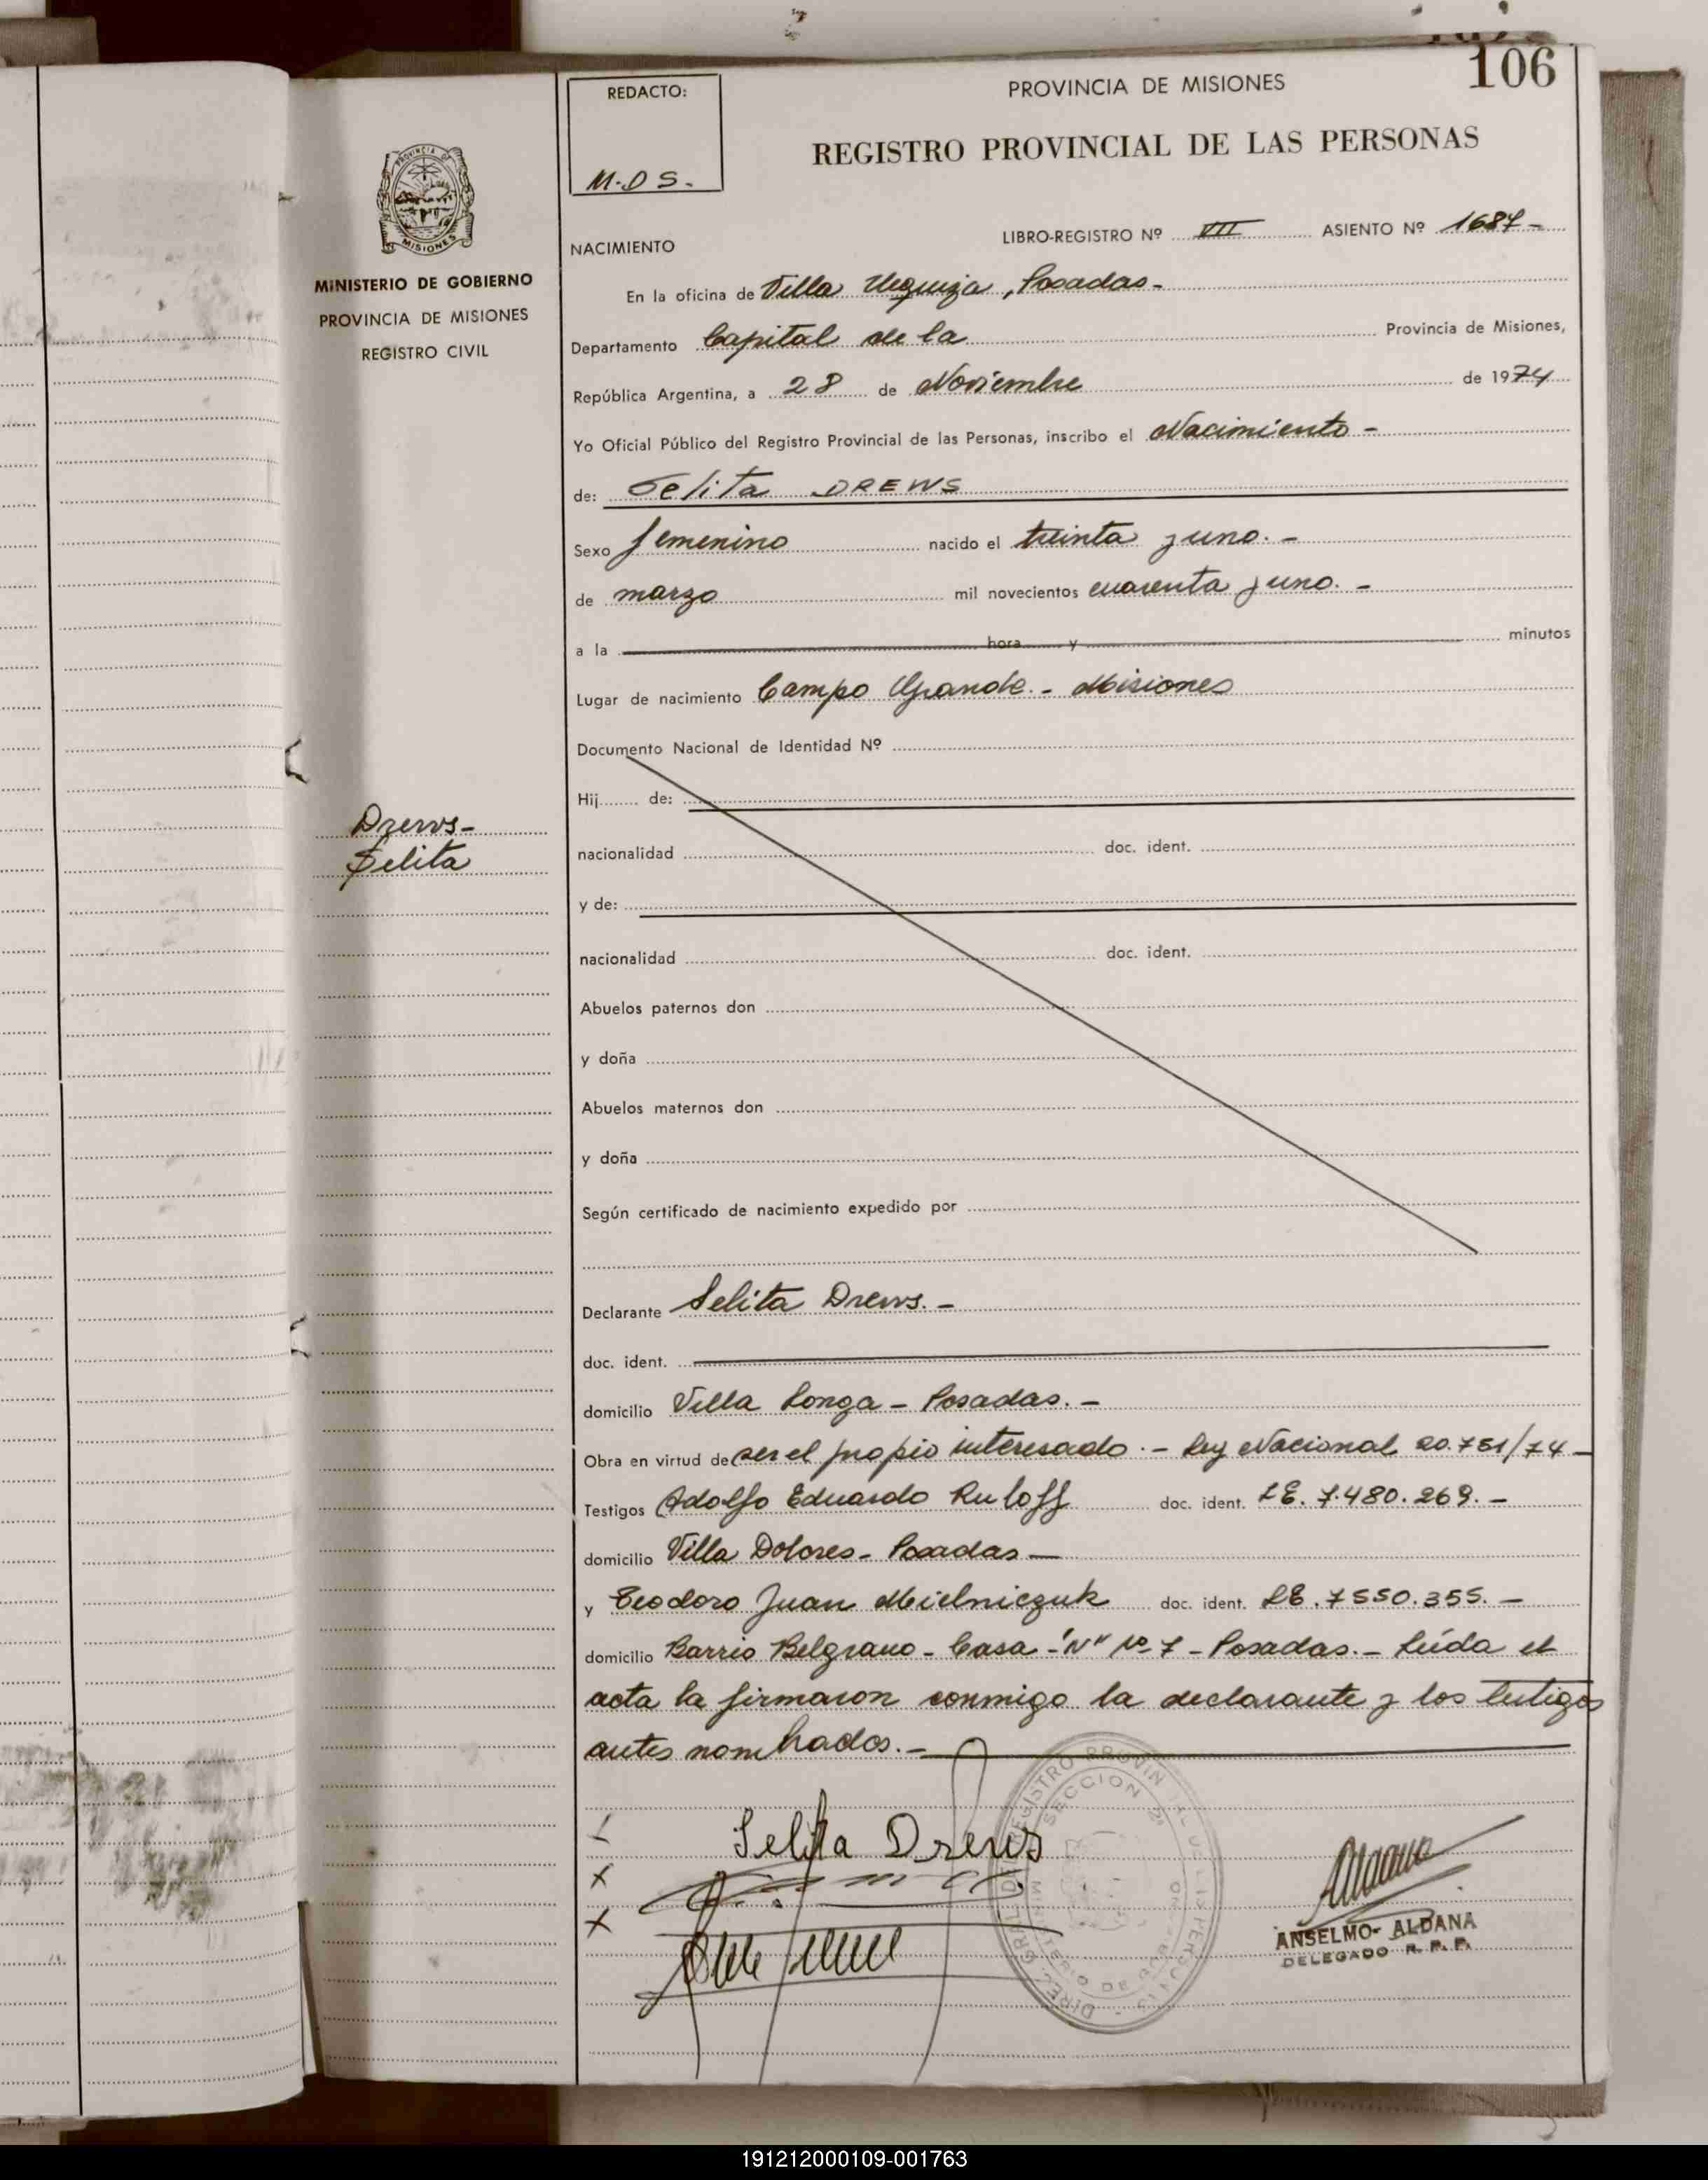 106
REDACTO:
M.D S.
PROVINCIA DE MISIONES
REGISTRO PROVINCIAL DE LAS PERSONAS
PROVINCIA DE
MISIONES
MINISTERIO DE GOBIERNO
PROVINCIA DE MISIONES
REGISTRO CIVIL
Drews-
Selita
NACIMIENTO
LIBRO-REGISTRO Nº VII ASIENTO Nº 1687-
En la oficina de Villa Urquiza, Posadas-
Departamento Capital de la Provincia de Misiones,
República Argentina, a 28 de Noviembre de 1974
Yo Oficial Público del Registro Provincial de las Personas, inscribo el Nacimiento-
de: Selita DREWS
Sexo femenino nacido el treinta y uno.-
de marzo mil novecientos cuarenta y uno.-
a la hora y minutos
Lugar de nacimiento Campo Grande.- Misiones
Documento Nacional de Identidad Nº
Hij de:
nacionalidad doc. ident.
y de:
nacionalidad doc. ident.
Abuelos paternos don
y doña
Abuelos maternos don
y doña
Según certificado de nacimiento expedido por
Declarante Selita Drews.-
doc. ident.
domicilio Villa Longa - Posadas.-
Obra en virtud de ser el propio interesado.- Ley Nacional 20.751/74-
Testigos Adolfo Eduardo Ruloff doc. ident. LE. 7.480.269.-
domicilio Villa Dolores- Posadas-
y Teodoro Juan Mielniczuk doc. ident. LE. 7550.355.-
domicilio Barrio Belgrano - Casa "N" Nº 7 - Posadas.- Leída el
acta la firmaron conmigo la declarante y los testigos
antes nombrados.-
Selita Drews
SECCION
ANSELMO- ALDANA
DELEGADO R. P. P.
191212000109-001763